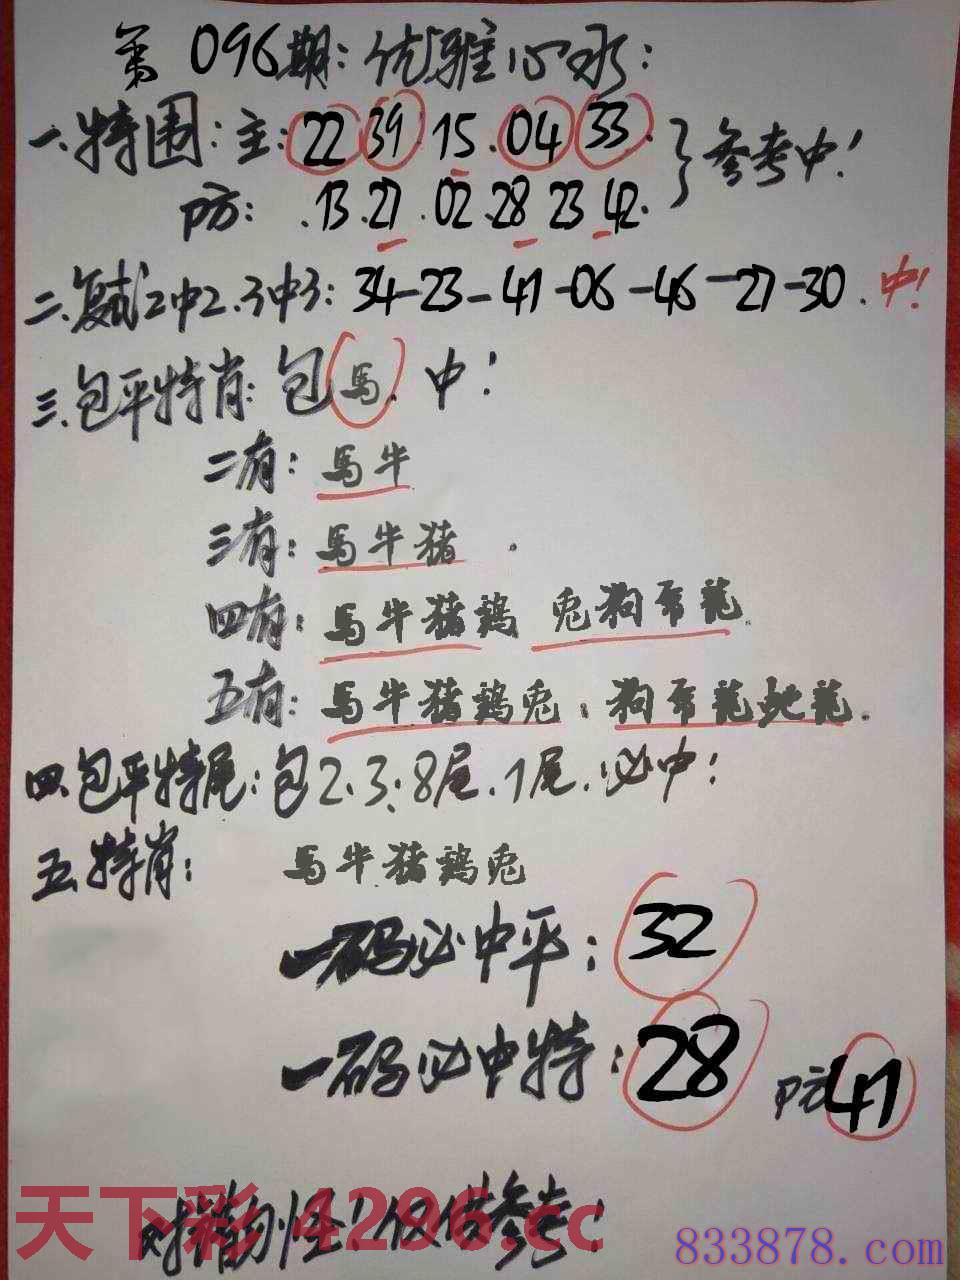 第096期:优雅心水:
一.特围:主:22 39.15.04 33. }参考中!
防:.13.27.02.28 23 42.
二.复式2中2.3中3:34-23-41-06-46-27-30.中!
三.包平特肖:包馬.中!
二有:馬牛
三有:馬牛猪.
四有:馬牛猪鸡 兔狗 龍.
五有:馬牛猪鸡兔:狗 龍 .
四.包平特尾:包2.3:8尾.1尾.必中!
五.特肖: 馬牛猪鸡兔
一码必中平:32
一码必中特:28 防41
错勿怪!仅供参考!
天下彩 4296.cc
833878.com